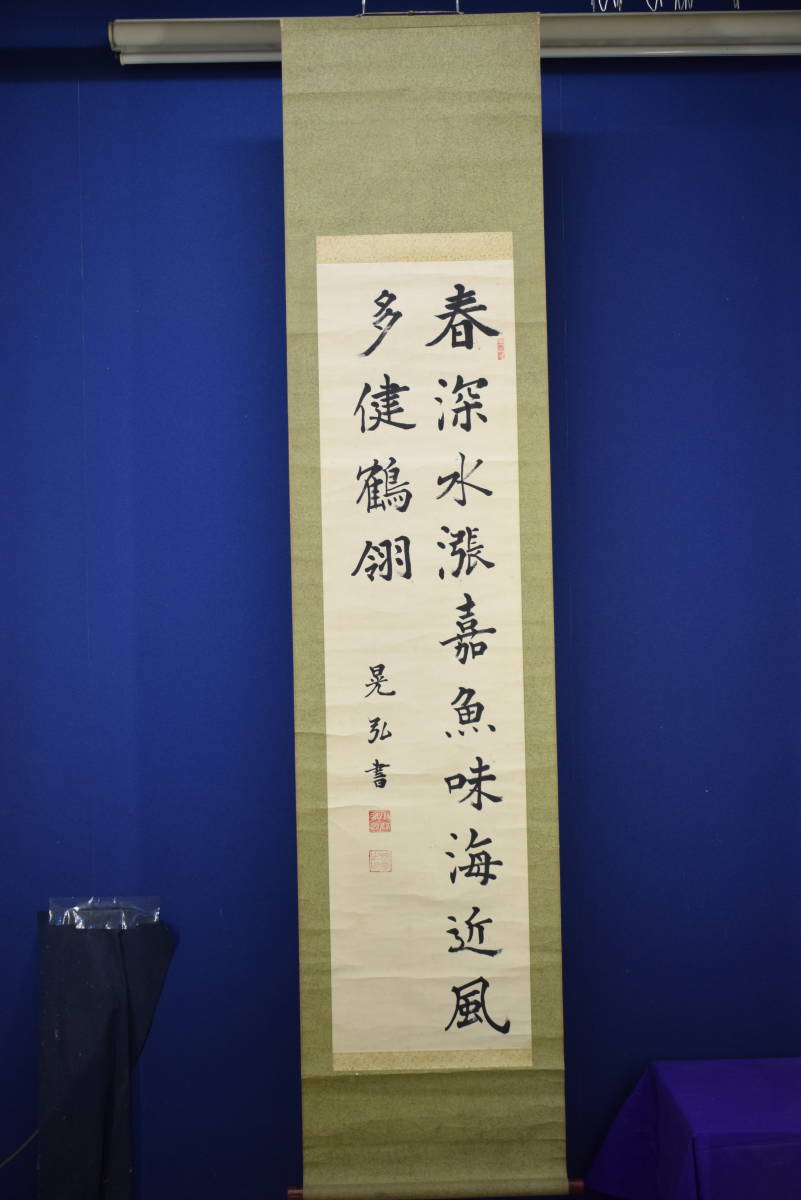 春深水漲嘉魚味海近風
多健鶴翎
晃弘書